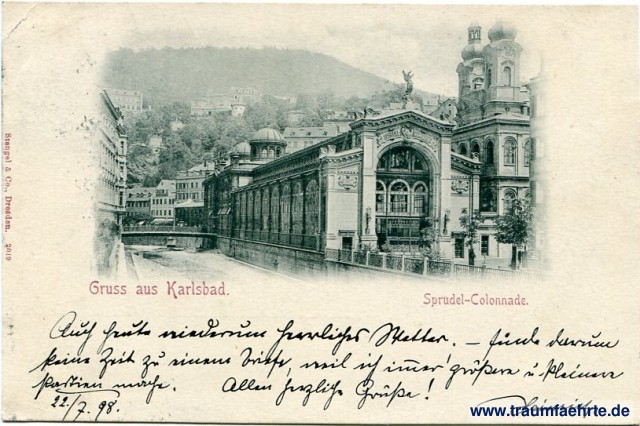 Stengel & Co., Dresden. 2019
Gruss aus Karlsbad.
Sprudel-Colonnade.
Auch heute wiederum herrliches Wetter. – finde darum
keine Zeit zu einem Briefe, weil ich immer größere u. kleinere
Partien mache. Allen herzliche Grüße!
22./7. 98.
www.traumfaehrte.de